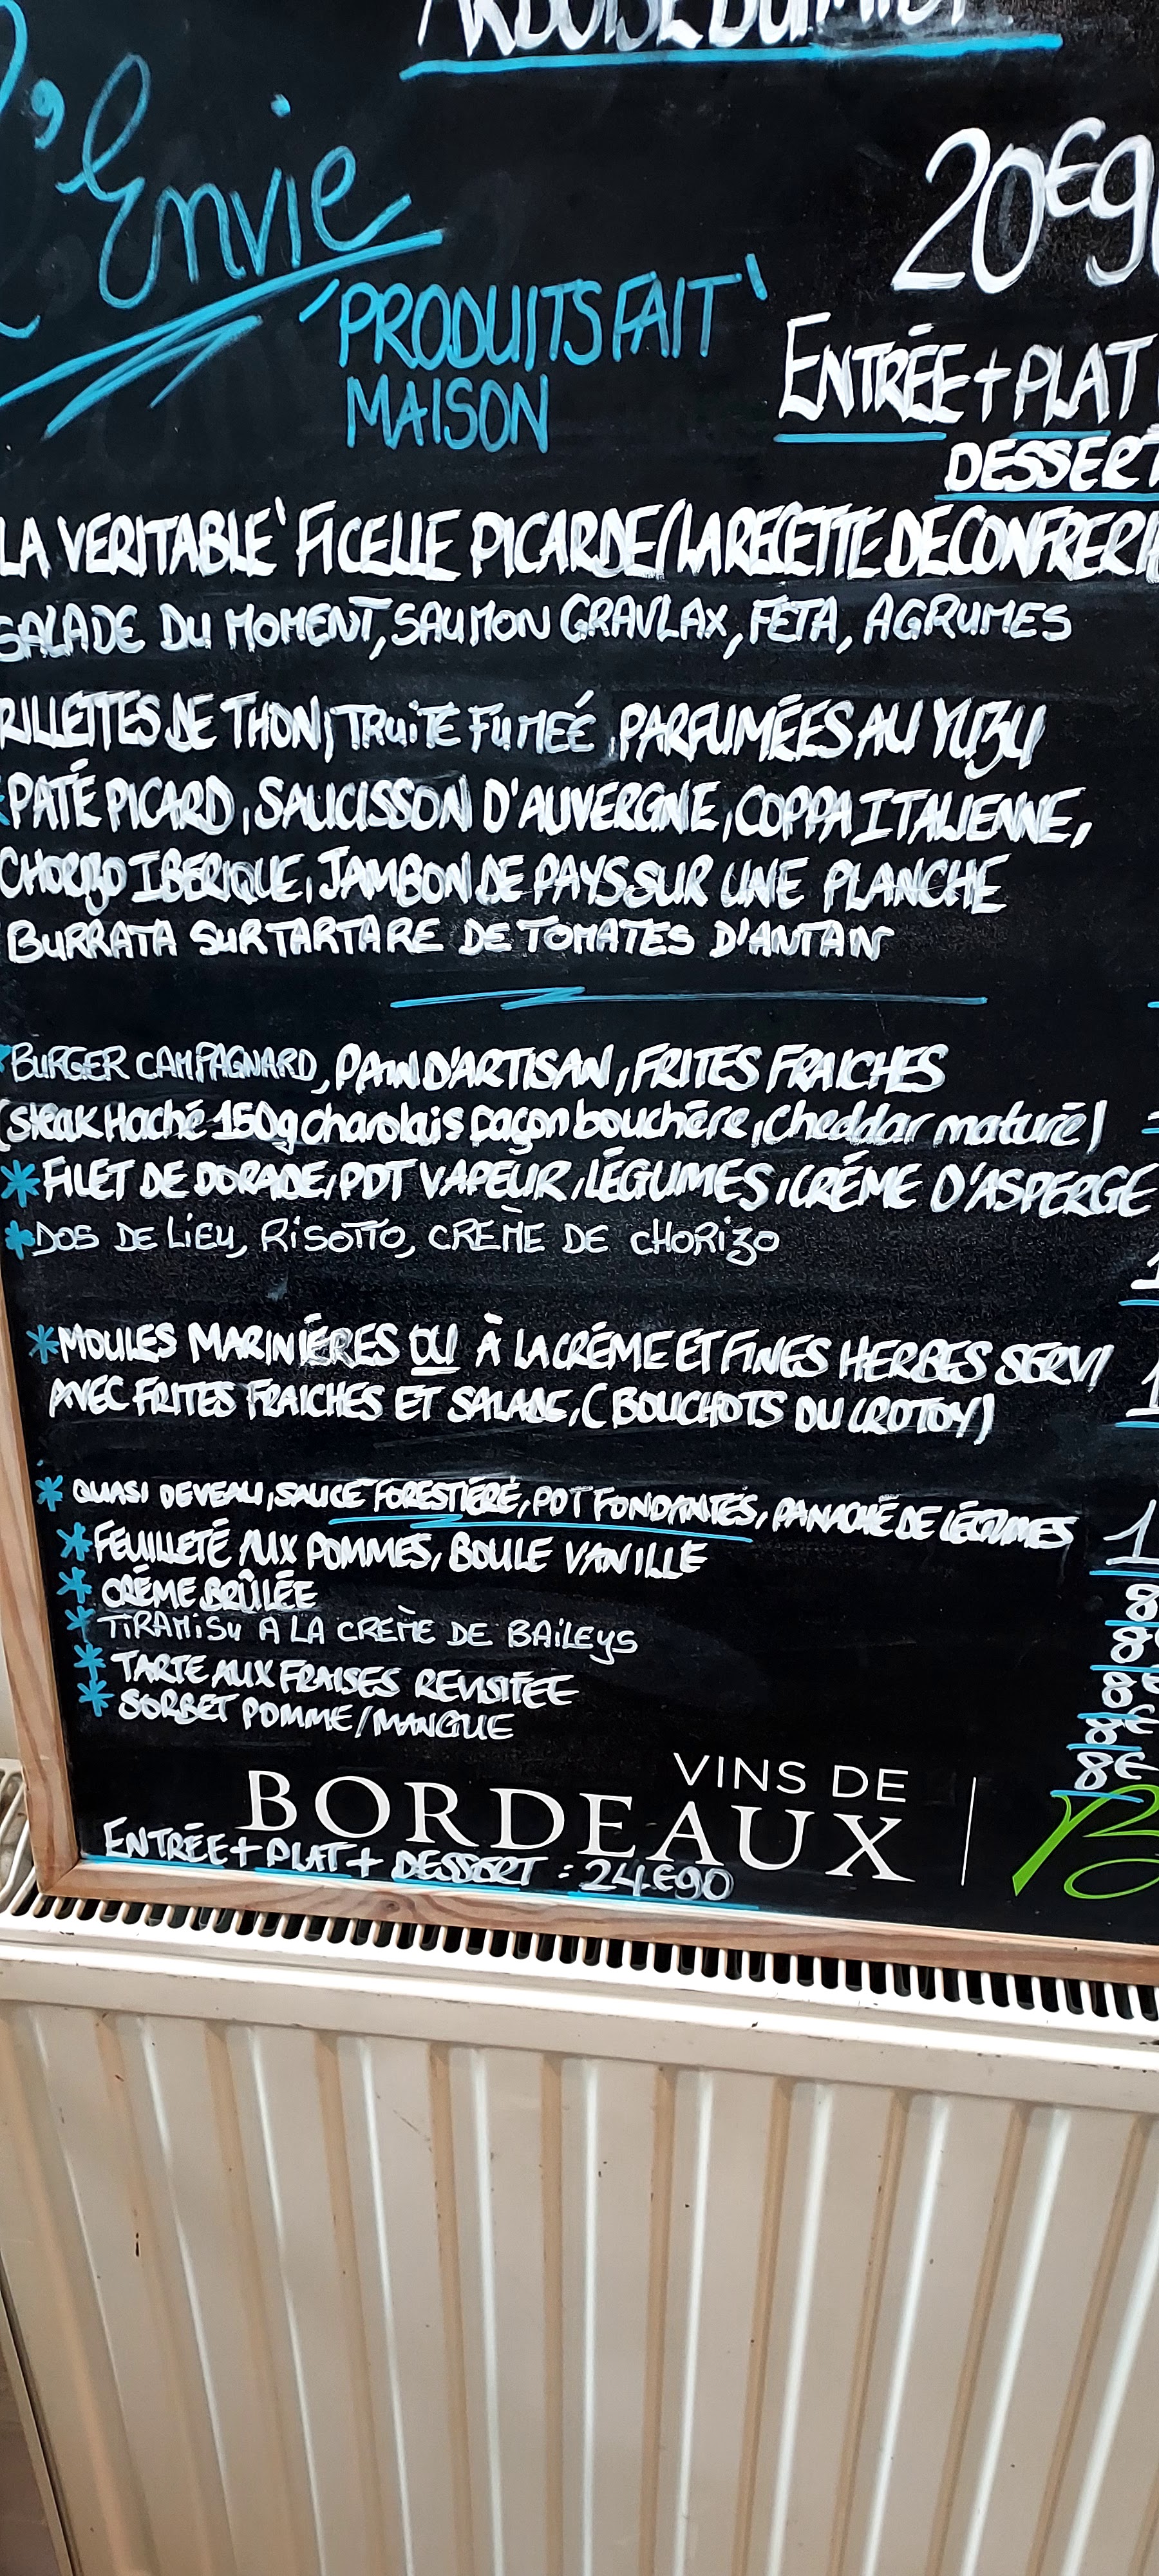 ARDOISE DU MIDI
L'Envie
20€90
'PRODUITS FAIT'
MAISON
ENTRÉE + PLAT
DESSERT
LA VERITABLE' FICELLE PICARDE (LA RECETTE DE CONFRERI
SALADE DU MOMENT, SAUMON GRAVLAX, FETA, AGRUMES
RILLETTES DE THON, TRUITE FUMEÉ, PARFUMÉES AU YUZU
*PATÉ PICARD, SAUCISSON D'AUVERGNE, COPPA ITALIENNE,
CHORIZO IBERIQUE, JAMBON DE PAYS SUR UNE PLANCHE
BURRATA SUR TARTARE DE TOMATES D'ANTAN
*BURGER CAMPAGNARD, PAIN D'ARTISAN, FRITES FRAICHES
(Steak Haché 150g charolais façon bouchère, Cheddar maturé)
*FILET DE DORADE, PDT VAPEUR, LÉGUMES, CRÉME D'ASPERGE
*DOS DE LIEU, RISOTTO, CREME DE CHORIZO
*MOULES MARINIÉRES OU À LA CRÉME ET FINES HERBES SERVI
AVEC FRITES FRAICHES ET SALADE, (BOUCHOTS DU CROTOY)
* QUASI DE VEAU, SAUCE FORESTIÉRE, PDT FONDANTES, PANACHÉ DE LÉGUMES
*FEUILLETÉ AUX POMMES, BOULE VANILLE 8
* CRÉME BRÛLÉE 8€
* TIRAMISU A LA CREME DE BAILEYS 8€
* TARTE AUX FRAISES REVISITEE 8€
* SORBET POMME/MANGUE 8€
VINS DE
BORDEAUX
ENTRÉE + PLAT + DESSERT : 24€90